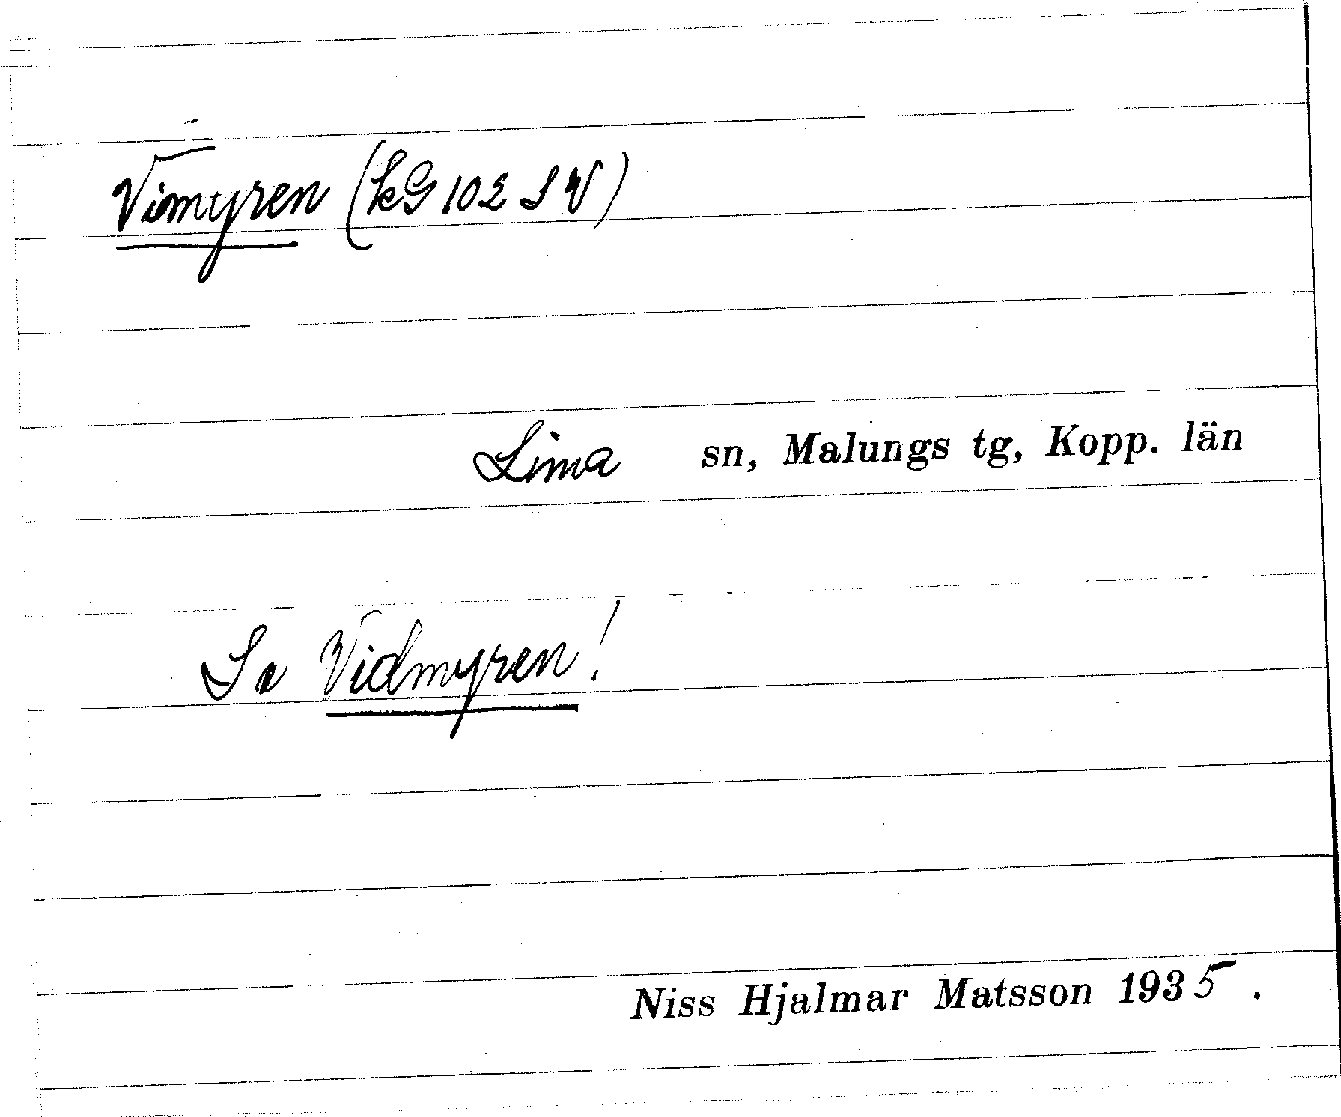 Vimyren (kG 102 SV)
Lima sn, Malungs tg, Kopp. län
Se Vidmyren!
Niss Hjalmar Matsson 1935.